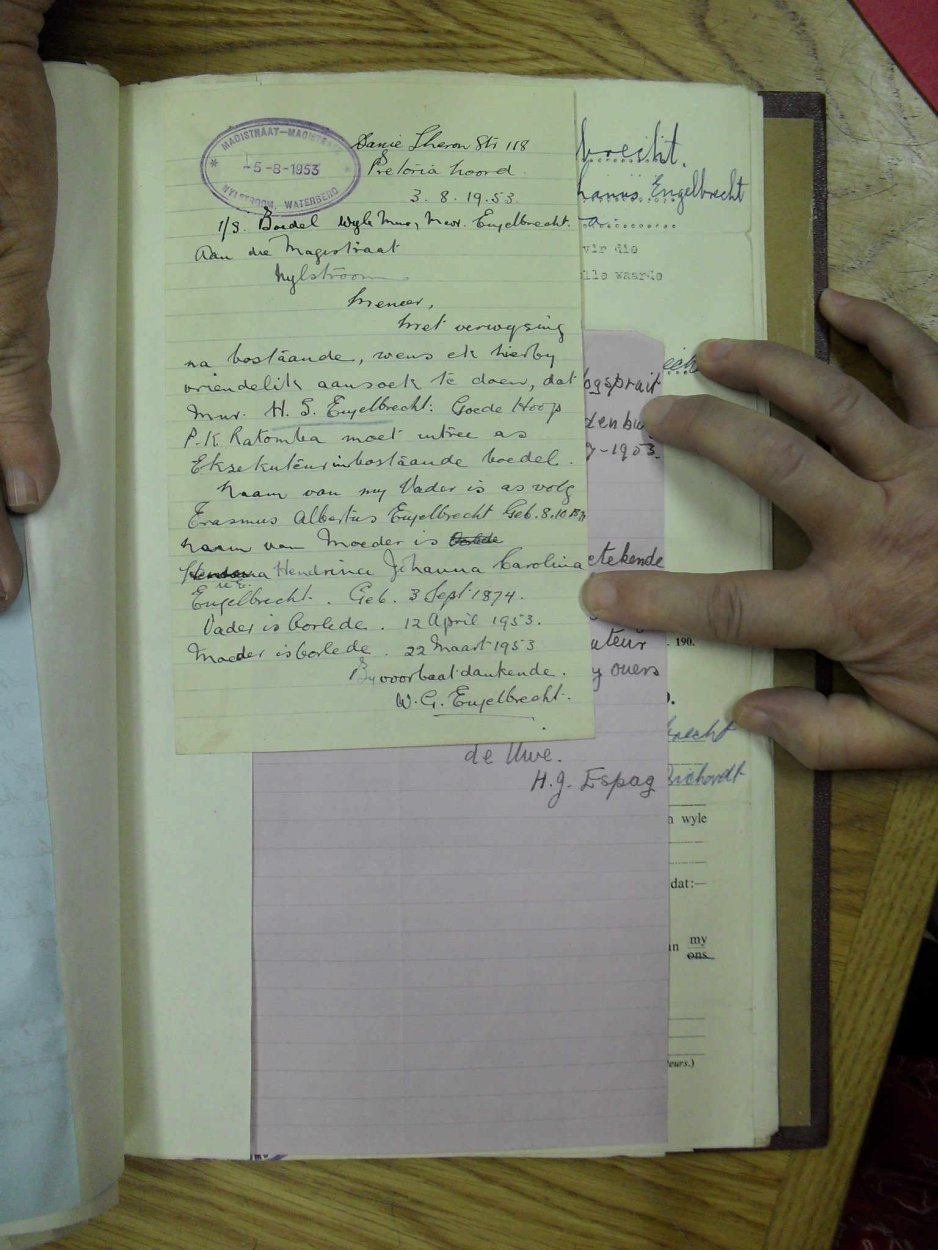 MAGISTRAAT—MAGISTRATE
-5-8-1953
NYLSTROOM, WATERBERG
Danie Theron Str 118
Pretoria Noord.
3.8.1953.
I/S. Boedel Wyle Mnr, Mevr. Engelbrecht.
Aan die Magistraat
Nylstroom
Meneer,
Met verwysing
na bostäande, wens ek hierby
vriendelik aansoek te doen, dat
Mnr. H. S. Engelbrecht: Goede Hoop
P.K. Ratomba moet intree as
Eksekuteur in bostäande boedel.
Naam van my Vader is as volg
Erasmus Albertus Engelbrecht Geb. 8.10.
Naam van Moeder is
Hendrina Johanna Carolina
Engelbrecht. Geb. 3 Sept 1874.
Vader is oorlede. 12 April 1953.
Moeder is oorlede. 22 Maart 1953
By voorbaat dankende.
W. G. Engelbrecht.
brecht.
hanus Engelbrecht
a
vir die
lle waarde
ogspruit
denburg
-1953.
etekende
uteur
190.
y ouers
de Uwe.
brecht
H. J. Espag
n wyle
dat:—
an my
ons
eurs.)